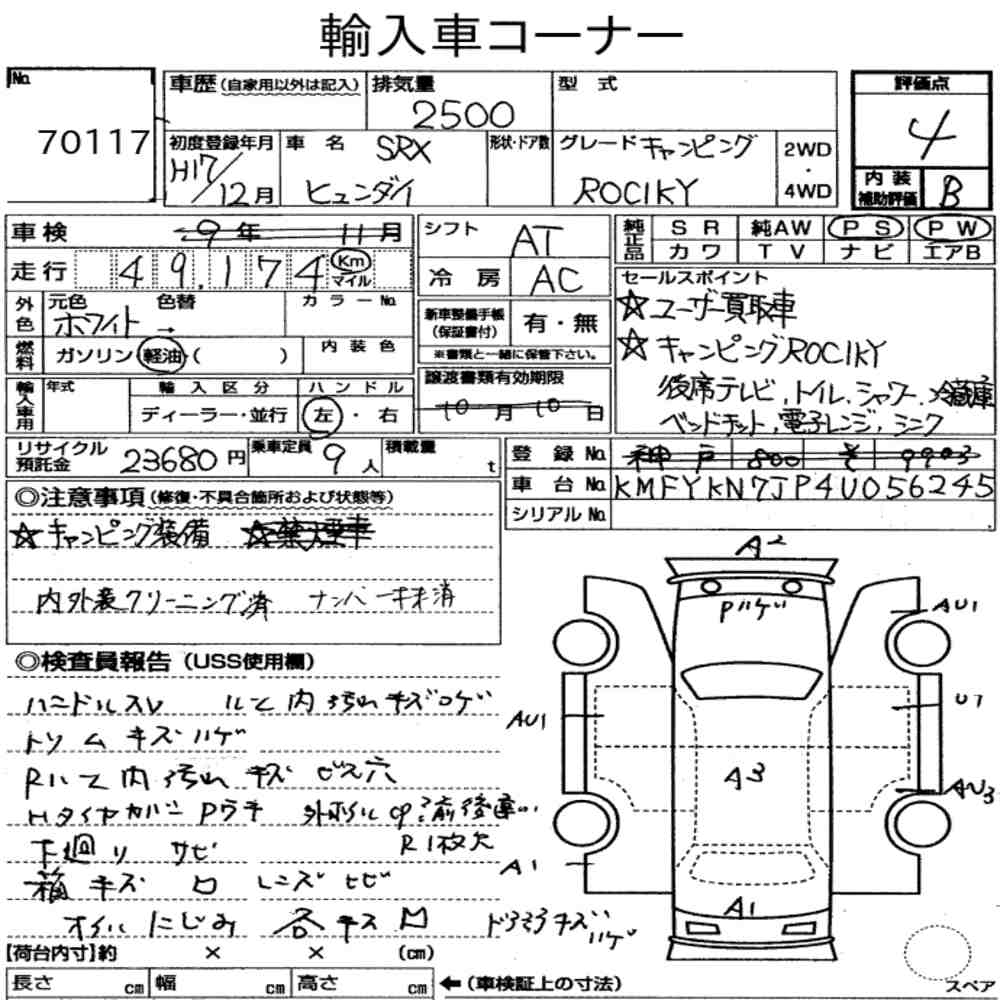 輸入車コーナー
No. 70117
車歴 (自家用以外は記入) 排気量 2500 型式
初度登録年月 H17/12月 車名 SRX ヒュンダイ 形状・ドア数 グレード キャンピング ROCIKY 2WD・4WD
評価点 4
内装補助評価 B
車検 9年 11月
走行 49,174 Km マイル
シフト AT
冷房 AC
純正品 SR 純AW PS PW
カワ TV ナビ エアB
外色 元色 ホワイト 色替 → カラーNo.
燃料 ガソリン 軽油 ( ) 内装色
新車整備手帳 (保証書付) 有・無
※書類と一緒に保管下さい。
輸入車用 年式 輸入区分 ディーラー・並行 ハンドル 左・右
譲渡書類有効期限
10月10日
セールスポイント
☆ユーザー買取車
☆キャンピングROCIKY
後席テレビ、トイレ、シャワー、冷蔵庫
ベッドキット、電子レンジ、シンク
リサイクル預託金 23680円 乗車定員 9人 積載量 t
登録No. 神戸 800 そ 9903
車台No. KMFYKN7JP4U056245
シリアルNo.
◎注意事項 (修復・不具合箇所および状態等)
☆キャンピング装備
内外装クリーニング済 ナンバー未抹消
◎検査員報告 (USS使用欄)
ハンドルスレ ルーム内汚れキズコゲ
トリムキズハゲ
内汚れ キズ ビス穴
Hタイヤカバー Pワチ
下廻り サビ R1枚欠
箱キズ レンズヒビ
オイルにじみ 各キズ凹
A2
Pハゲ
AU1
U7
AU1
A3
AU3
A1
A1
[荷台内寸] 約 × × (cm)
長さ cm 幅 cm 高さ cm ←(車検証上の寸法)
スペア